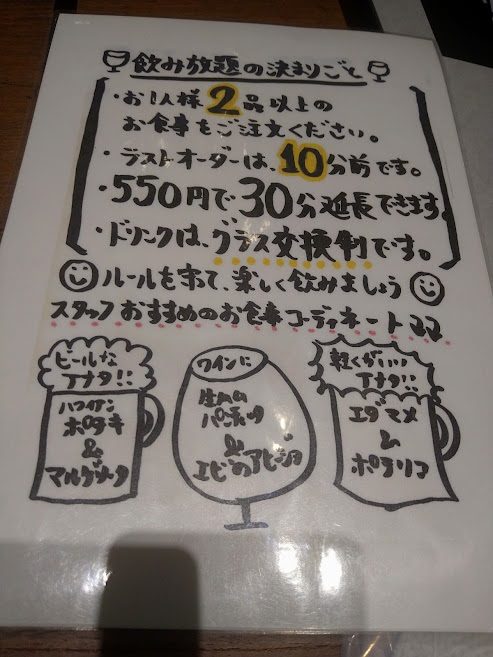 飲み放題の決まりごと
・お1人様2品以上の
お食事をご注文ください。
・ラストオーダーは、10分前です。
・550円で30分延長できます。
・ドリンクは、グラス交換制です。
ルールを守って、楽しく飲みましょう
スタッフおすすめのお食事コーディネートココ
ビールな
アナタ!!
ハワイアン
ポテキ
&
マルゲリータ
ワインに
生ハム
パンチェッタ
&
エビのアヒージョ
軽くがいい
アナタ!!
エダマメ
&
ポテリコ